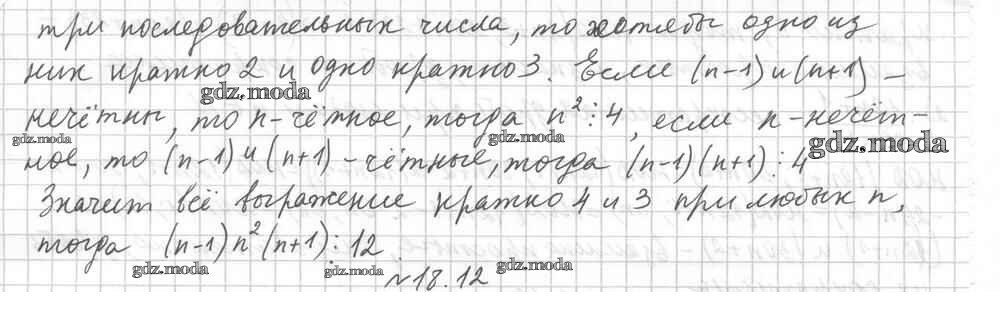 три последовательных числа, то хотябы одно из
них кратно 2 и одно кратно 3. Если (n-1) и (n+1) –
gdz.moda
нечётны, то n-чётное, тогда n²⋮4, если n-нечёт-
gdz.moda gdz.moda gdz.moda
ное, то (n-1) и (n+1) - чётные, тогда (n-1)(n+1)⋮4
gdz.moda gdz.moda
Значит всё выражение кратно 4 и 3 при любых n,
тогда (n-1)n²(n+1)⋮12
gdz.moda gdz.moda gdz.moda
№18.12